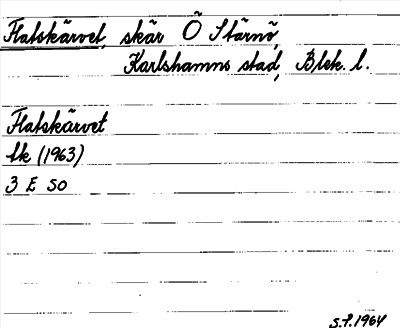 Flatskärvet, skär Ö Stärnö,
Karlshamns stad, Blek. l.
Flatskärvet
Ek (1963)
3 E SO
S.F. 1964